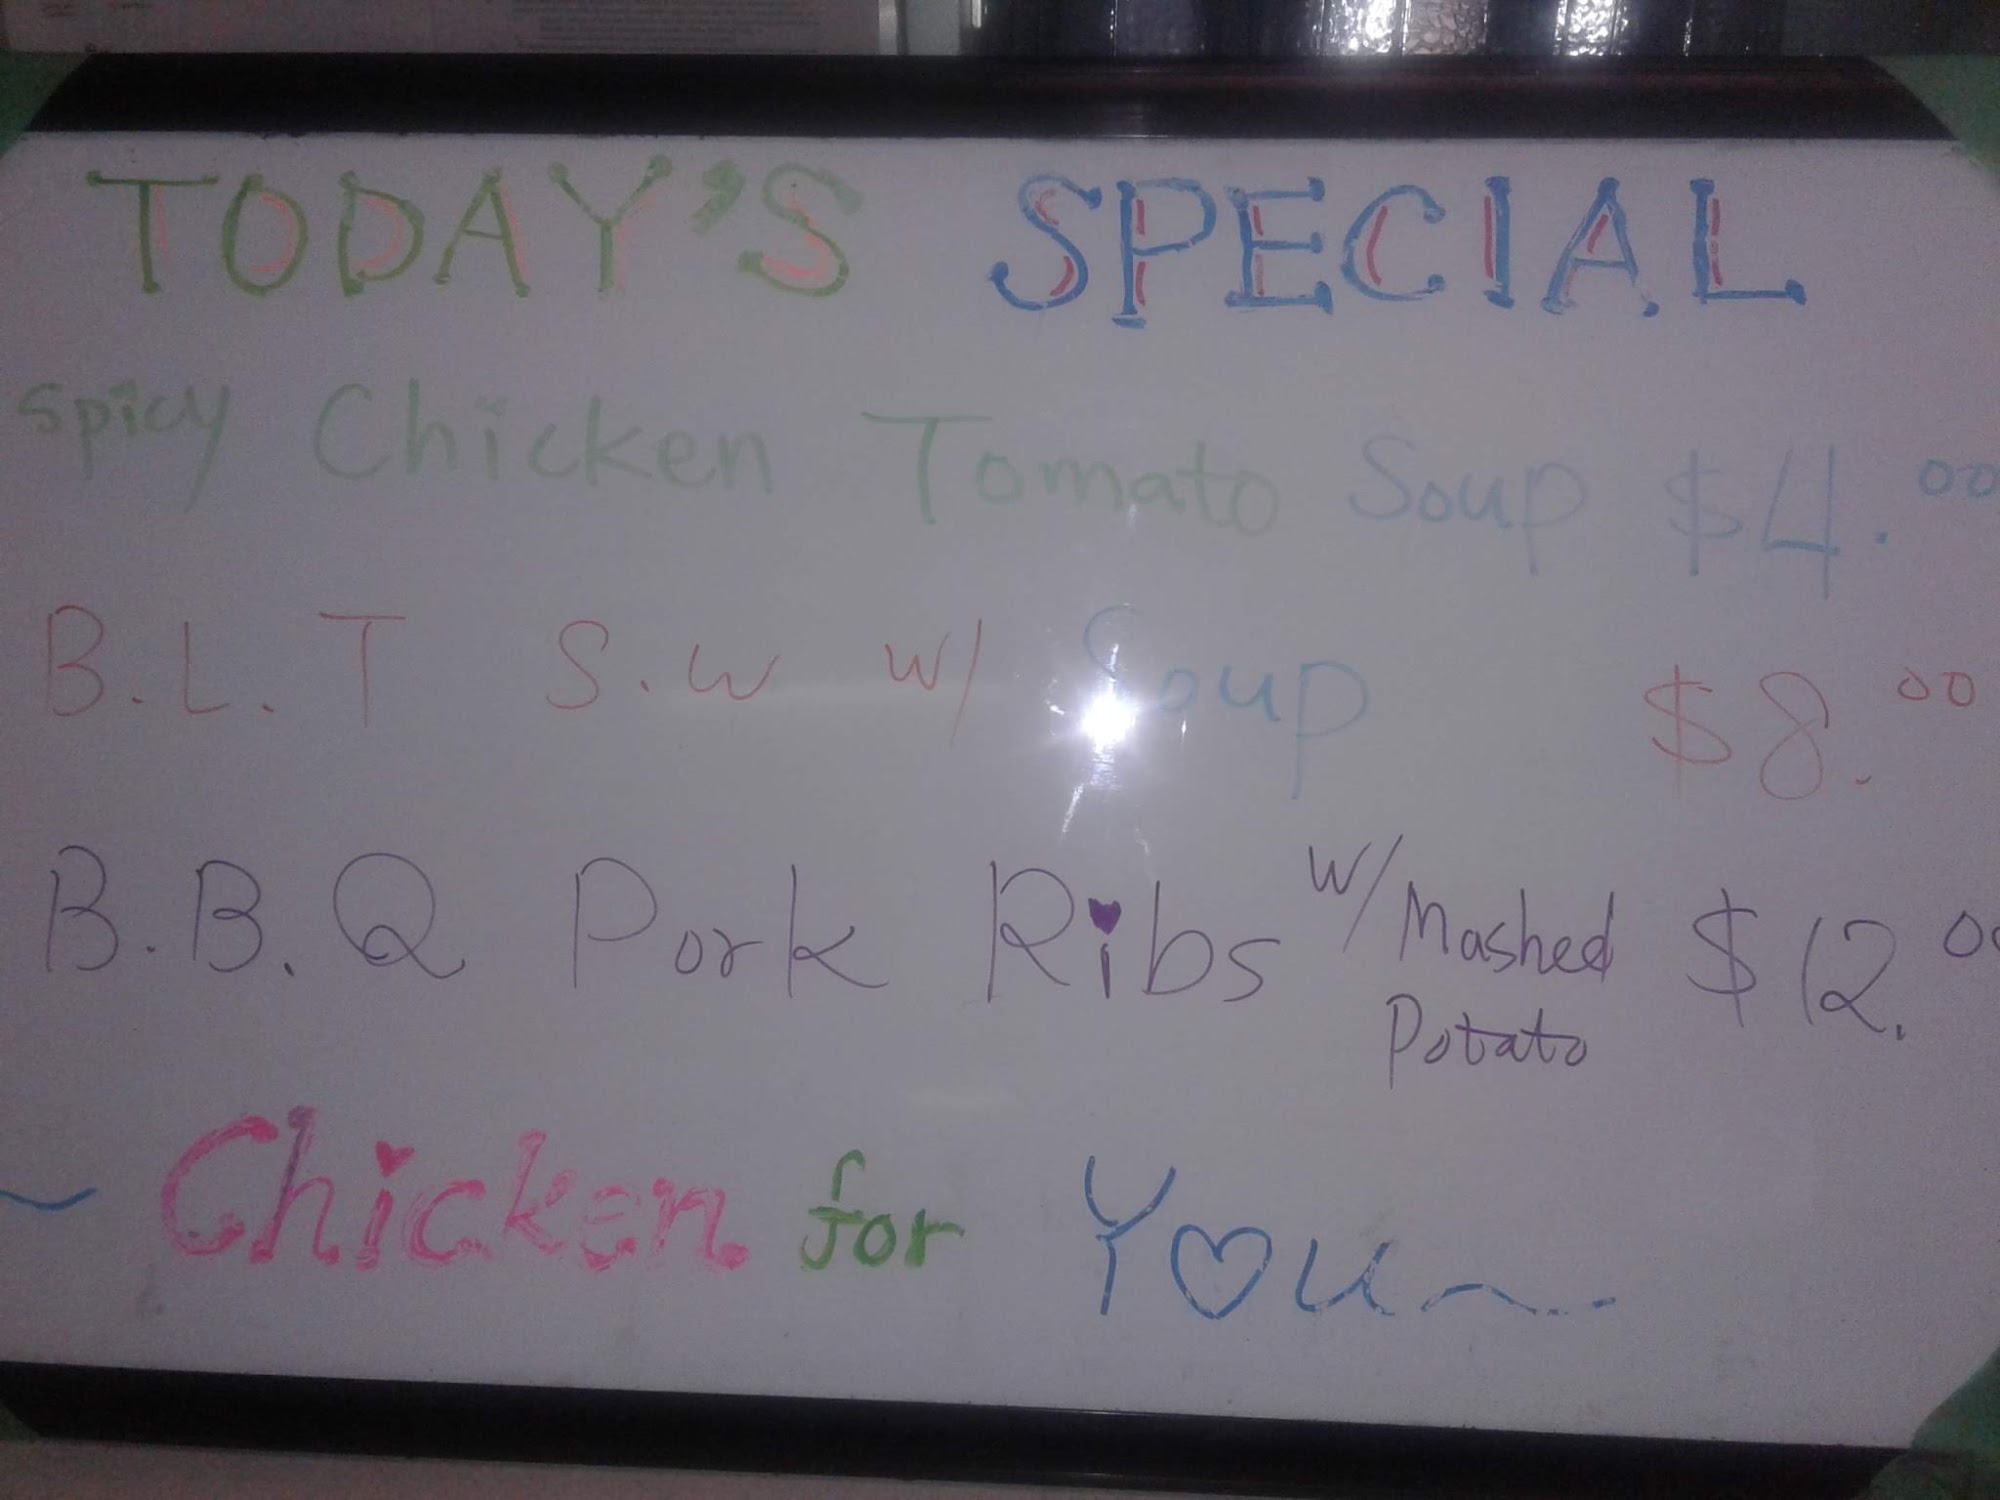 TODAY'S SPECIAL
Spicy Chicken Tomato Soup $4.00
B.L.T S.W W/ Soup $8.00
B.B.Q Pork Ribs W/ Mashed Potato $12.00
~ Chicken for You ~